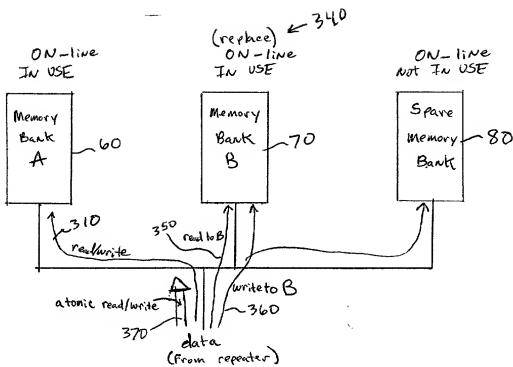 340
(replace)
ON-line
IN USE
ON-line
IN USE
ON-line
not In USE
Memory
Bank
A
60
Memory
Bank
B
70
Spare
Memory
Bank
80
310
read/write
350
read to B
write to B
atomic read/write
370
360
data
(from repeater)